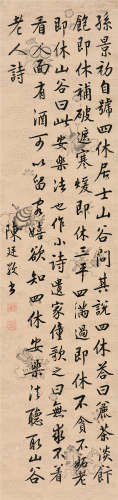 孫景初自號四休居士山谷問其說四休荅曰麄茶淡飰
飽即休補破遮寒暖即休三平四滿過即休不貪不妬老
即休山谷曰此安樂法也作小詩遣家僮歌之曰無求不着
看人面有酒可以留客嬉欲知四休安樂法聽取山谷
老人詩
陳廷敬書